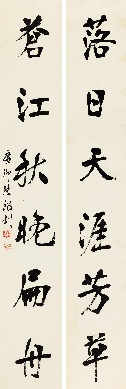 落日天涯芳草
蒼江秋晚扁舟